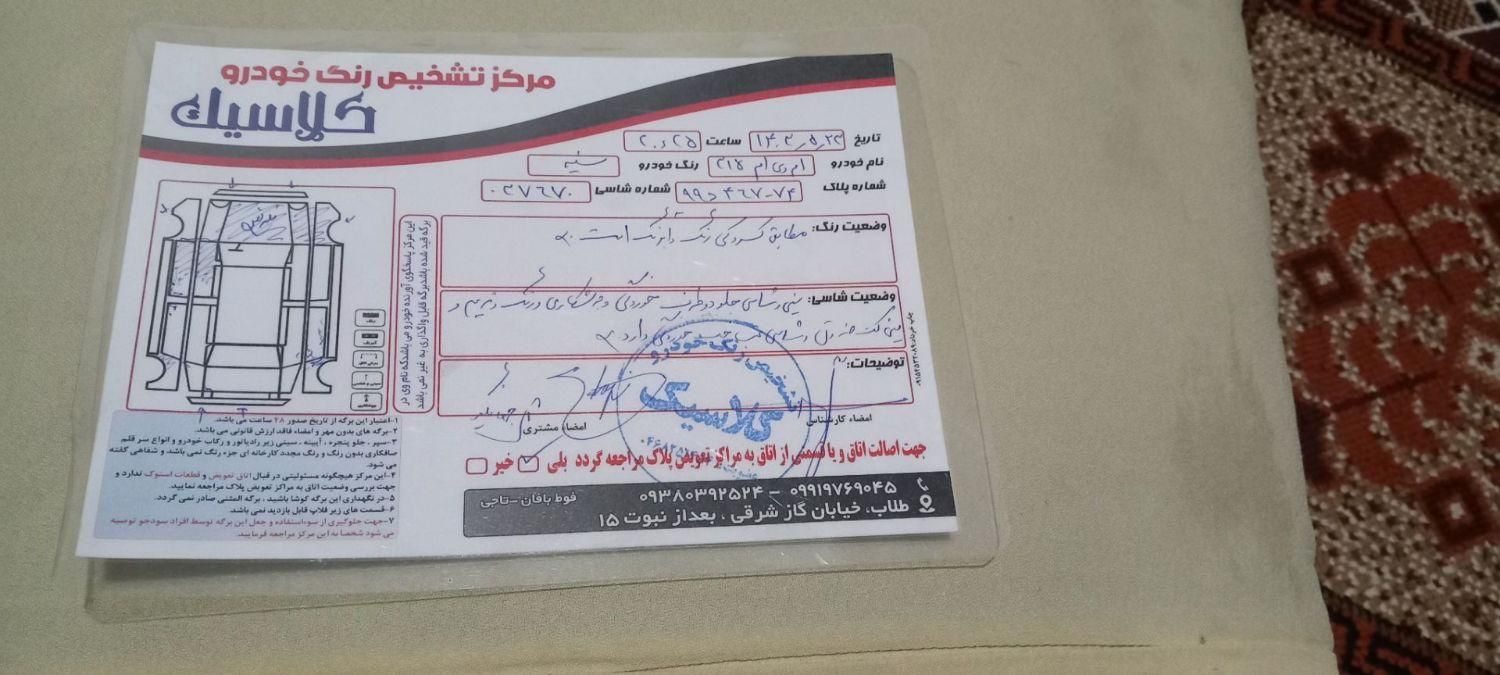 مرکز تشخیص رنگ خودرو
کلاسیک
تاریخ ۱۴۰۲٫۵٫۲۳ ساعت ۲۰:۲۵
نام خودرو ام وی ام ۳۱۵ رنگ خودرو سفید
شماره پلاک ۷۴-۴۶۷ د ۹۹ شماره شاسی ۰۲۷۶۷۰
وضعیت رنگ: مطابق کروکی رنگ و آبرنگ است
وضعیت شاسی: سینی و شاسی جلو دو طرف خوردگی و جوشکاری و رنگ داریم و
سینی کف صندوق و شاسی عقب چپ خوردگی دارد
توضیحات:
امضاء کارشناس
امضاء مشتری
تشخیص رنگ خودرو
کلاسیک
جهت اصالت اتاق و یا قسمتی از اتاق به مراکز تعویض پلاک مراجعه گردد بلی خیر
۰۹۹۱۹۷۶۹۰۴۵ - ۰۹۳۸۰۳۹۲۵۲۴
فوط بافان-تاجی
طلاب، خیابان گاز شرقی ، بعداز نبوت ۱۵
این مرکز پاسخگوی آورنده خودرو می باشد که نام وی در
برگه قید شده باشد برگه قابل واگذاری به غیر نمی باشد
تعویض
رنگ
آبرنگ
۱-اعتبار این برگه از تاریخ صدور ۴۸ ساعت می باشد.
۲-برگه های بدون مهر و امضاء فاقد ارزش قانونی می باشد.
۳-سپر ، جلو پنجره ، آیینه ، سینی زیر رادیاتور و رکاب خودرو و انواع سر قلم
صافکاری بدون رنگ و رنگ مجدد کارخانه ای جزء رنگ نمی باشد و شفاهی گفته
می شود.
۴-این مرکز هیچگونه مسئولیتی در قبال اتاق تعویض و قطعات استوک ندارد و
جهت بررسی وضعیت اتاق به مراکز تعویض پلاک مراجعه نمایید.
۵-در نگهداری این برگه کوشا باشید ، برگه المثنی صادر نمی گردد.
۶-قسمت های زیر فلاپ قابل بازدید نمی باشد.
۷-جهت جلوگیری از سوءاستفاده و جعل این برگه توسط افراد سودجو توصیه
می شود شخصا به این مرکز مراجعه فرمایید.